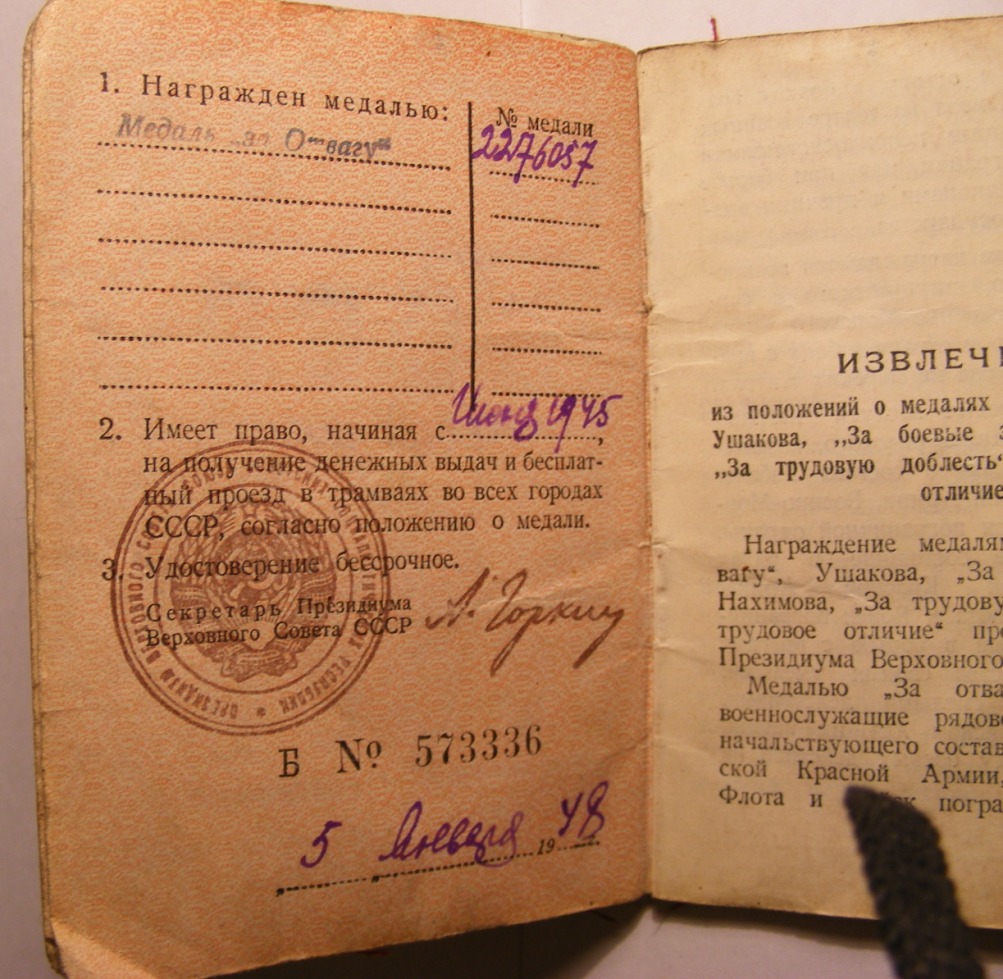 1. Награжден медалью:
№ медали
Медаль „за Отвагу“
2276057
2. Имеет право, начиная с Июня 1945,
на получение денежных выдач и бесплат-
ный проезд в трамваях во всех городах
СССР, согласно положению о медали.
3. Удостоверение бессрочное.
Секретарь Президиума
Верховного Совета СССР
А. Горкин
Б № 573336
5 Января 1948
ИЗВЛЕЧ
из положений о медалях
Ушакова, „За боевые з
„За трудовую доблесть“
отличие
Награждение медалям
вагу“, Ушакова, „За
Нахимова, „За трудову
трудовое отличие“ про
Президиума Верховного
Медалью „За отва
военнослужащие рядово
начальствующего состав
ской Красной Армии,
Флота и погра